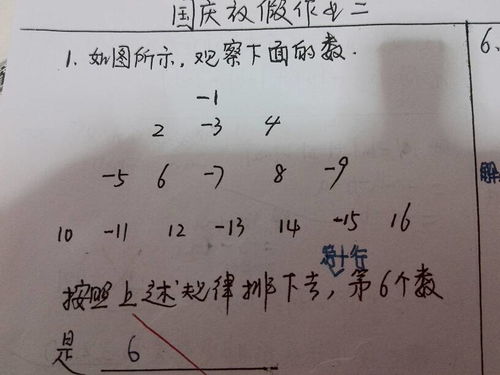 国庆放假作业二
1. 如图所示,观察下面的数.
-1
2 -3 4
-5 6 -7 8 -9
10 -11 12 -13 14 -15 16
第十行
按照上述规律排下去,第6个数
是 6
6、
解